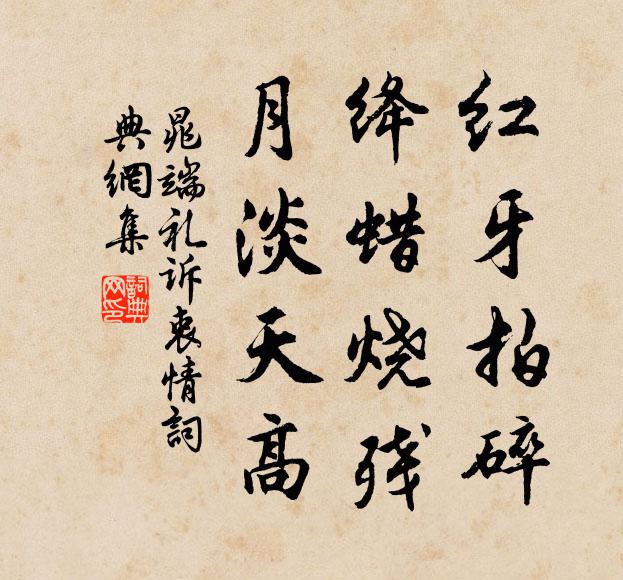 红牙拍碎
绛蜡烧残
月淡天高
晁端礼诉衷情詞
典網集
詞典
网印